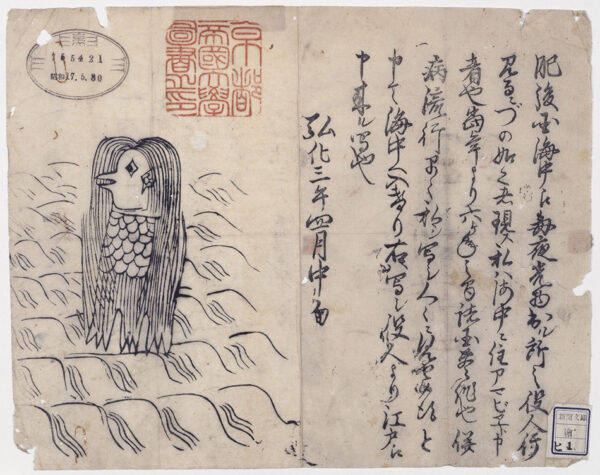 肥後国海中え毎夜光物出ル所之役人行
見るニづの如く者現ス私ハ海中ニ住アマビヱト申
者也当年より六ヶ年之間諸国豊作也併
病流行早々私ヲ写シ人々ニ見せ候得と
申て海中へ入けり右写シ役人より江戸え
申来ル写也
弘化三年四月中旬
京都
帝國大學
圖書之印
昭和17.5.30
新聞文庫
繪
ヒ1